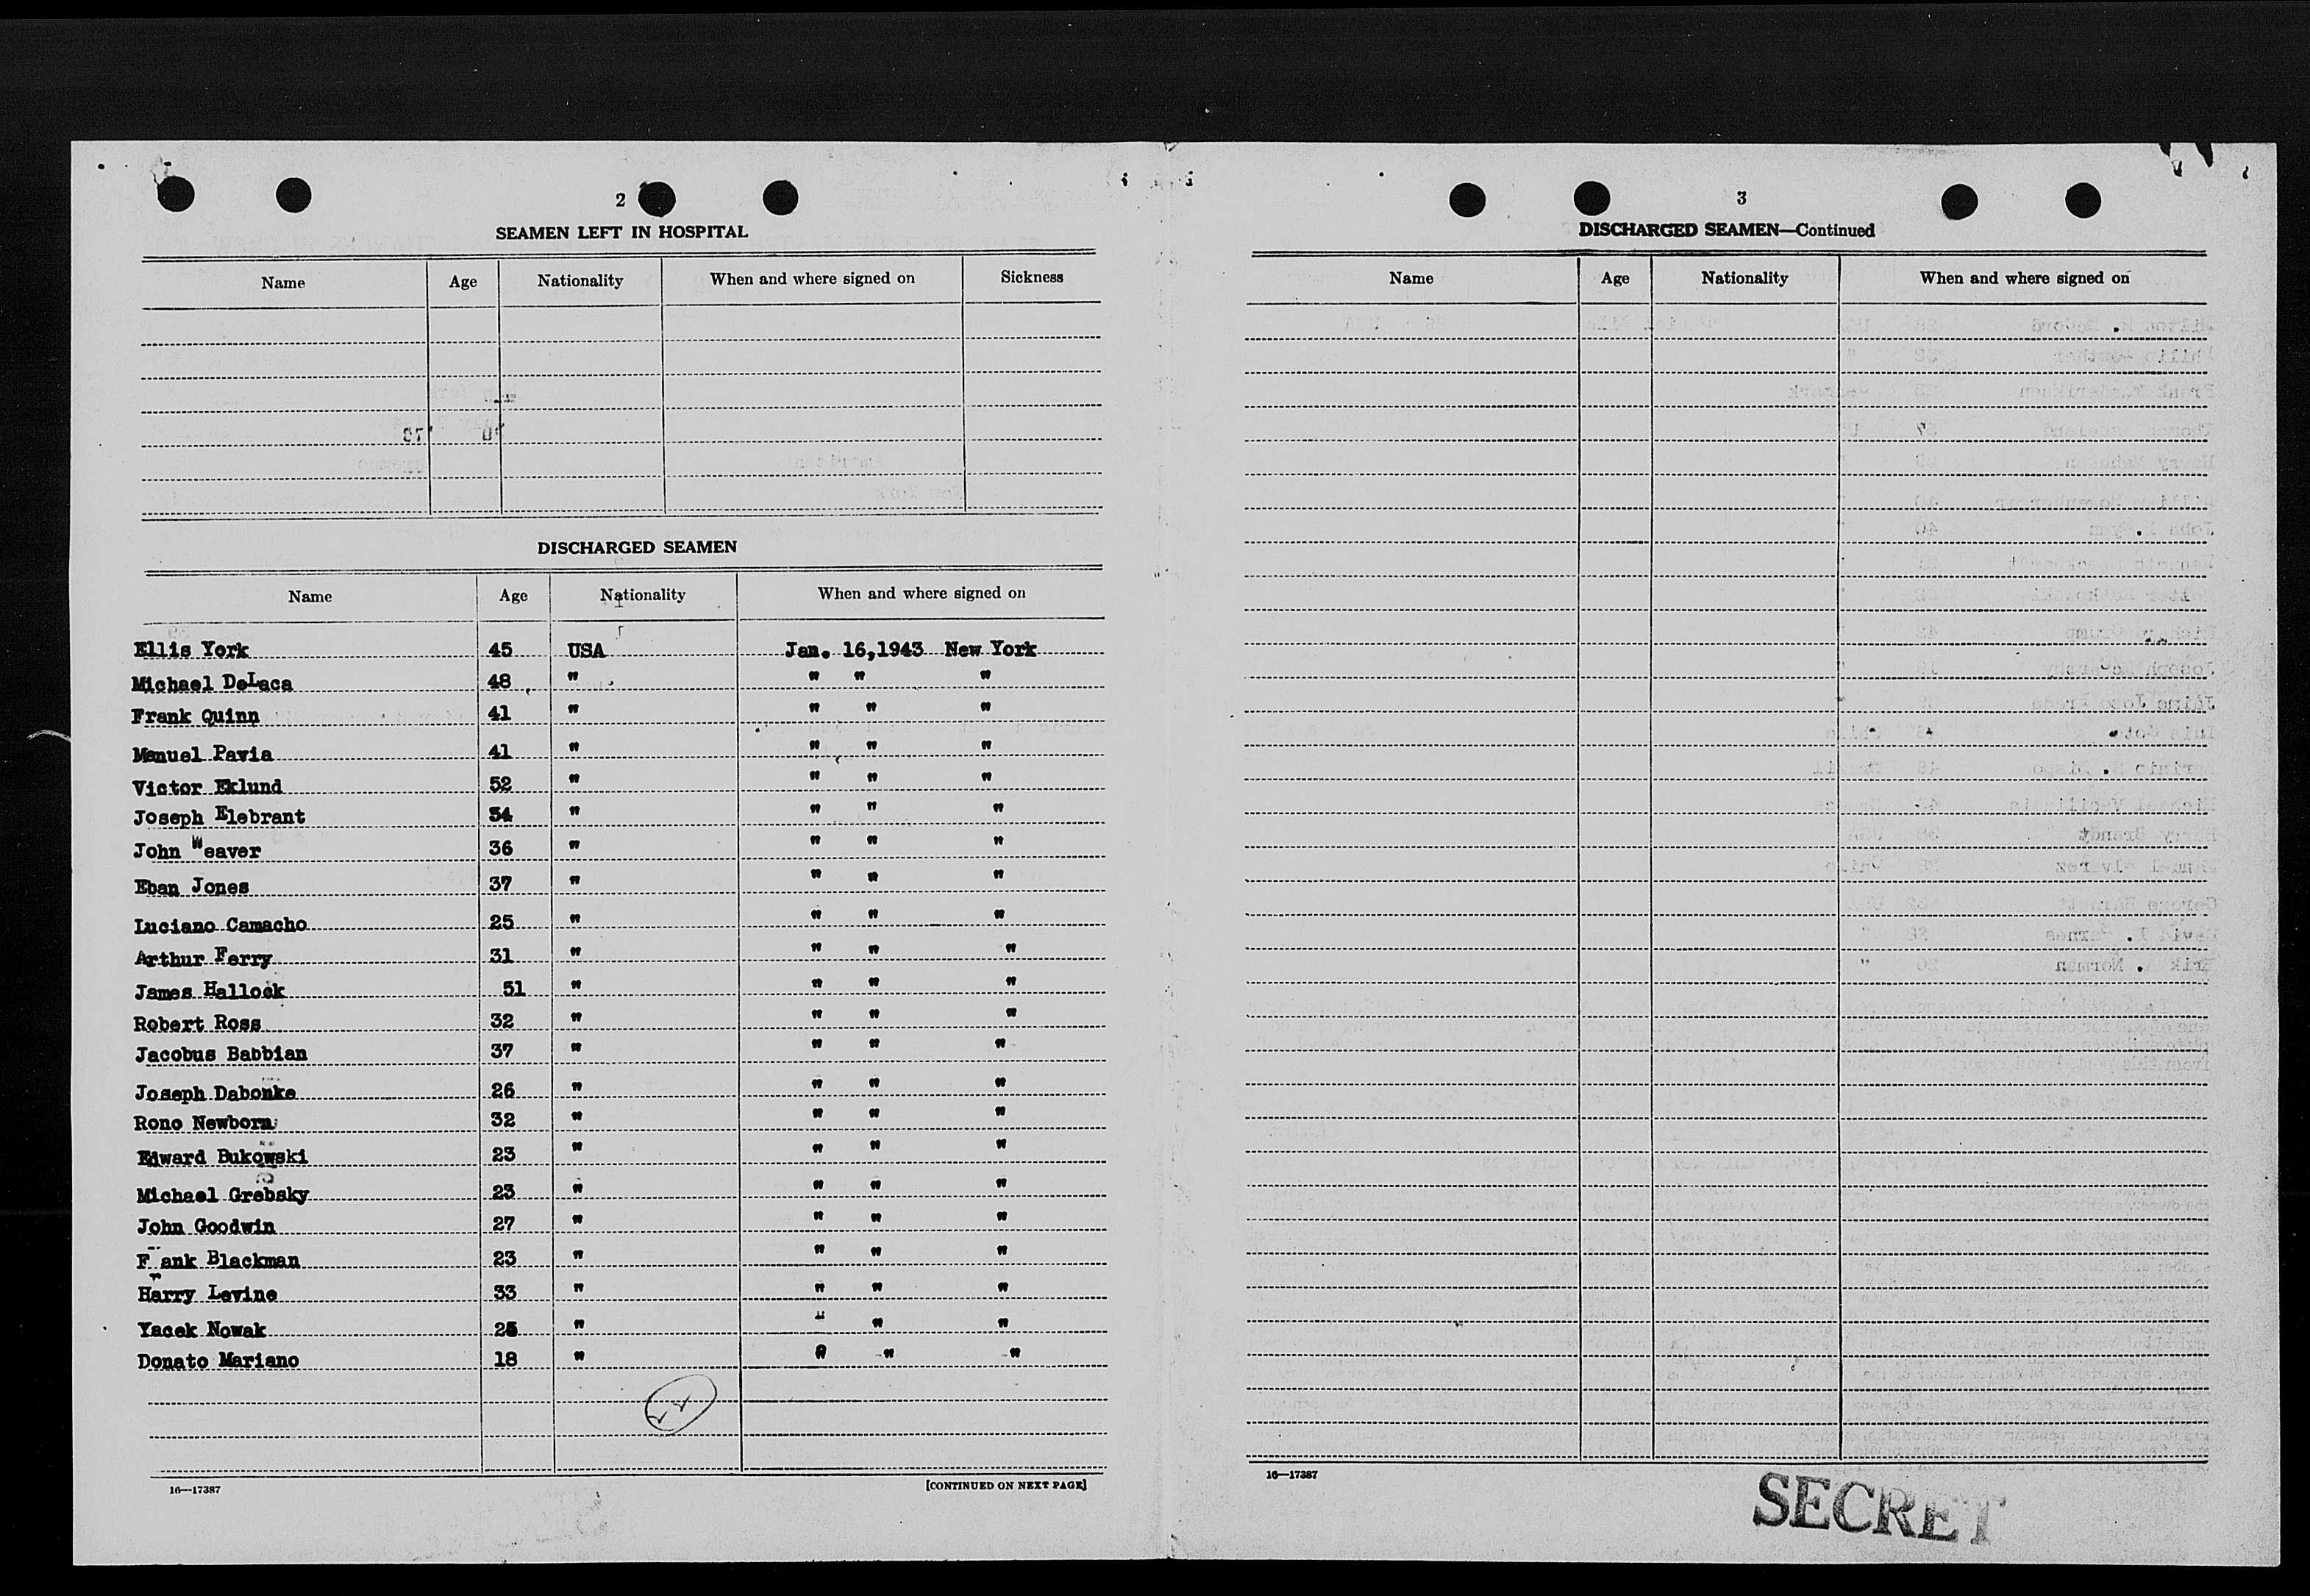 2
SEAMEN LEFT IN HOSPITAL
Name Age Nationality When and where signed on Sickness
DISCHARGED SEAMEN
Name Age Nationality When and where signed on
Ellis York 45 USA Jan. 16,1943 New York
Michael DeLaca 48 " " " "
Frank Quinn 41 " " " "
Manuel Pavia 41 " " " "
Victor Eklund 52 " " " "
Joseph Elebrant 54 " " " "
John Weaver 36 " " " "
Eban Jones 37 " " " "
Luciano Camacho 25 " " " "
Arthur Ferry 31 " " " "
James Hallock 51 " " " "
Robert Ross 32 " " " "
Jacobus Babbian 37 " " " "
Joseph Dabonke 26 " " " "
Rono Newborn 32 " " " "
Edward Bukowski 23 " " " "
Michael Grebsky 23 " " " "
John Goodwin 27 " " " "
Frank Blackman 23 " " " "
Harry Levine 33 " " " "
Yacek Nowak " " " "
Donato Mariano 18 " " " "
16—17387 [CONTINUED ON NEXT PAGE]
3
DISCHARGED SEAMEN—Continued
Name Age Nationality When and where signed on
16—17387
SECRET